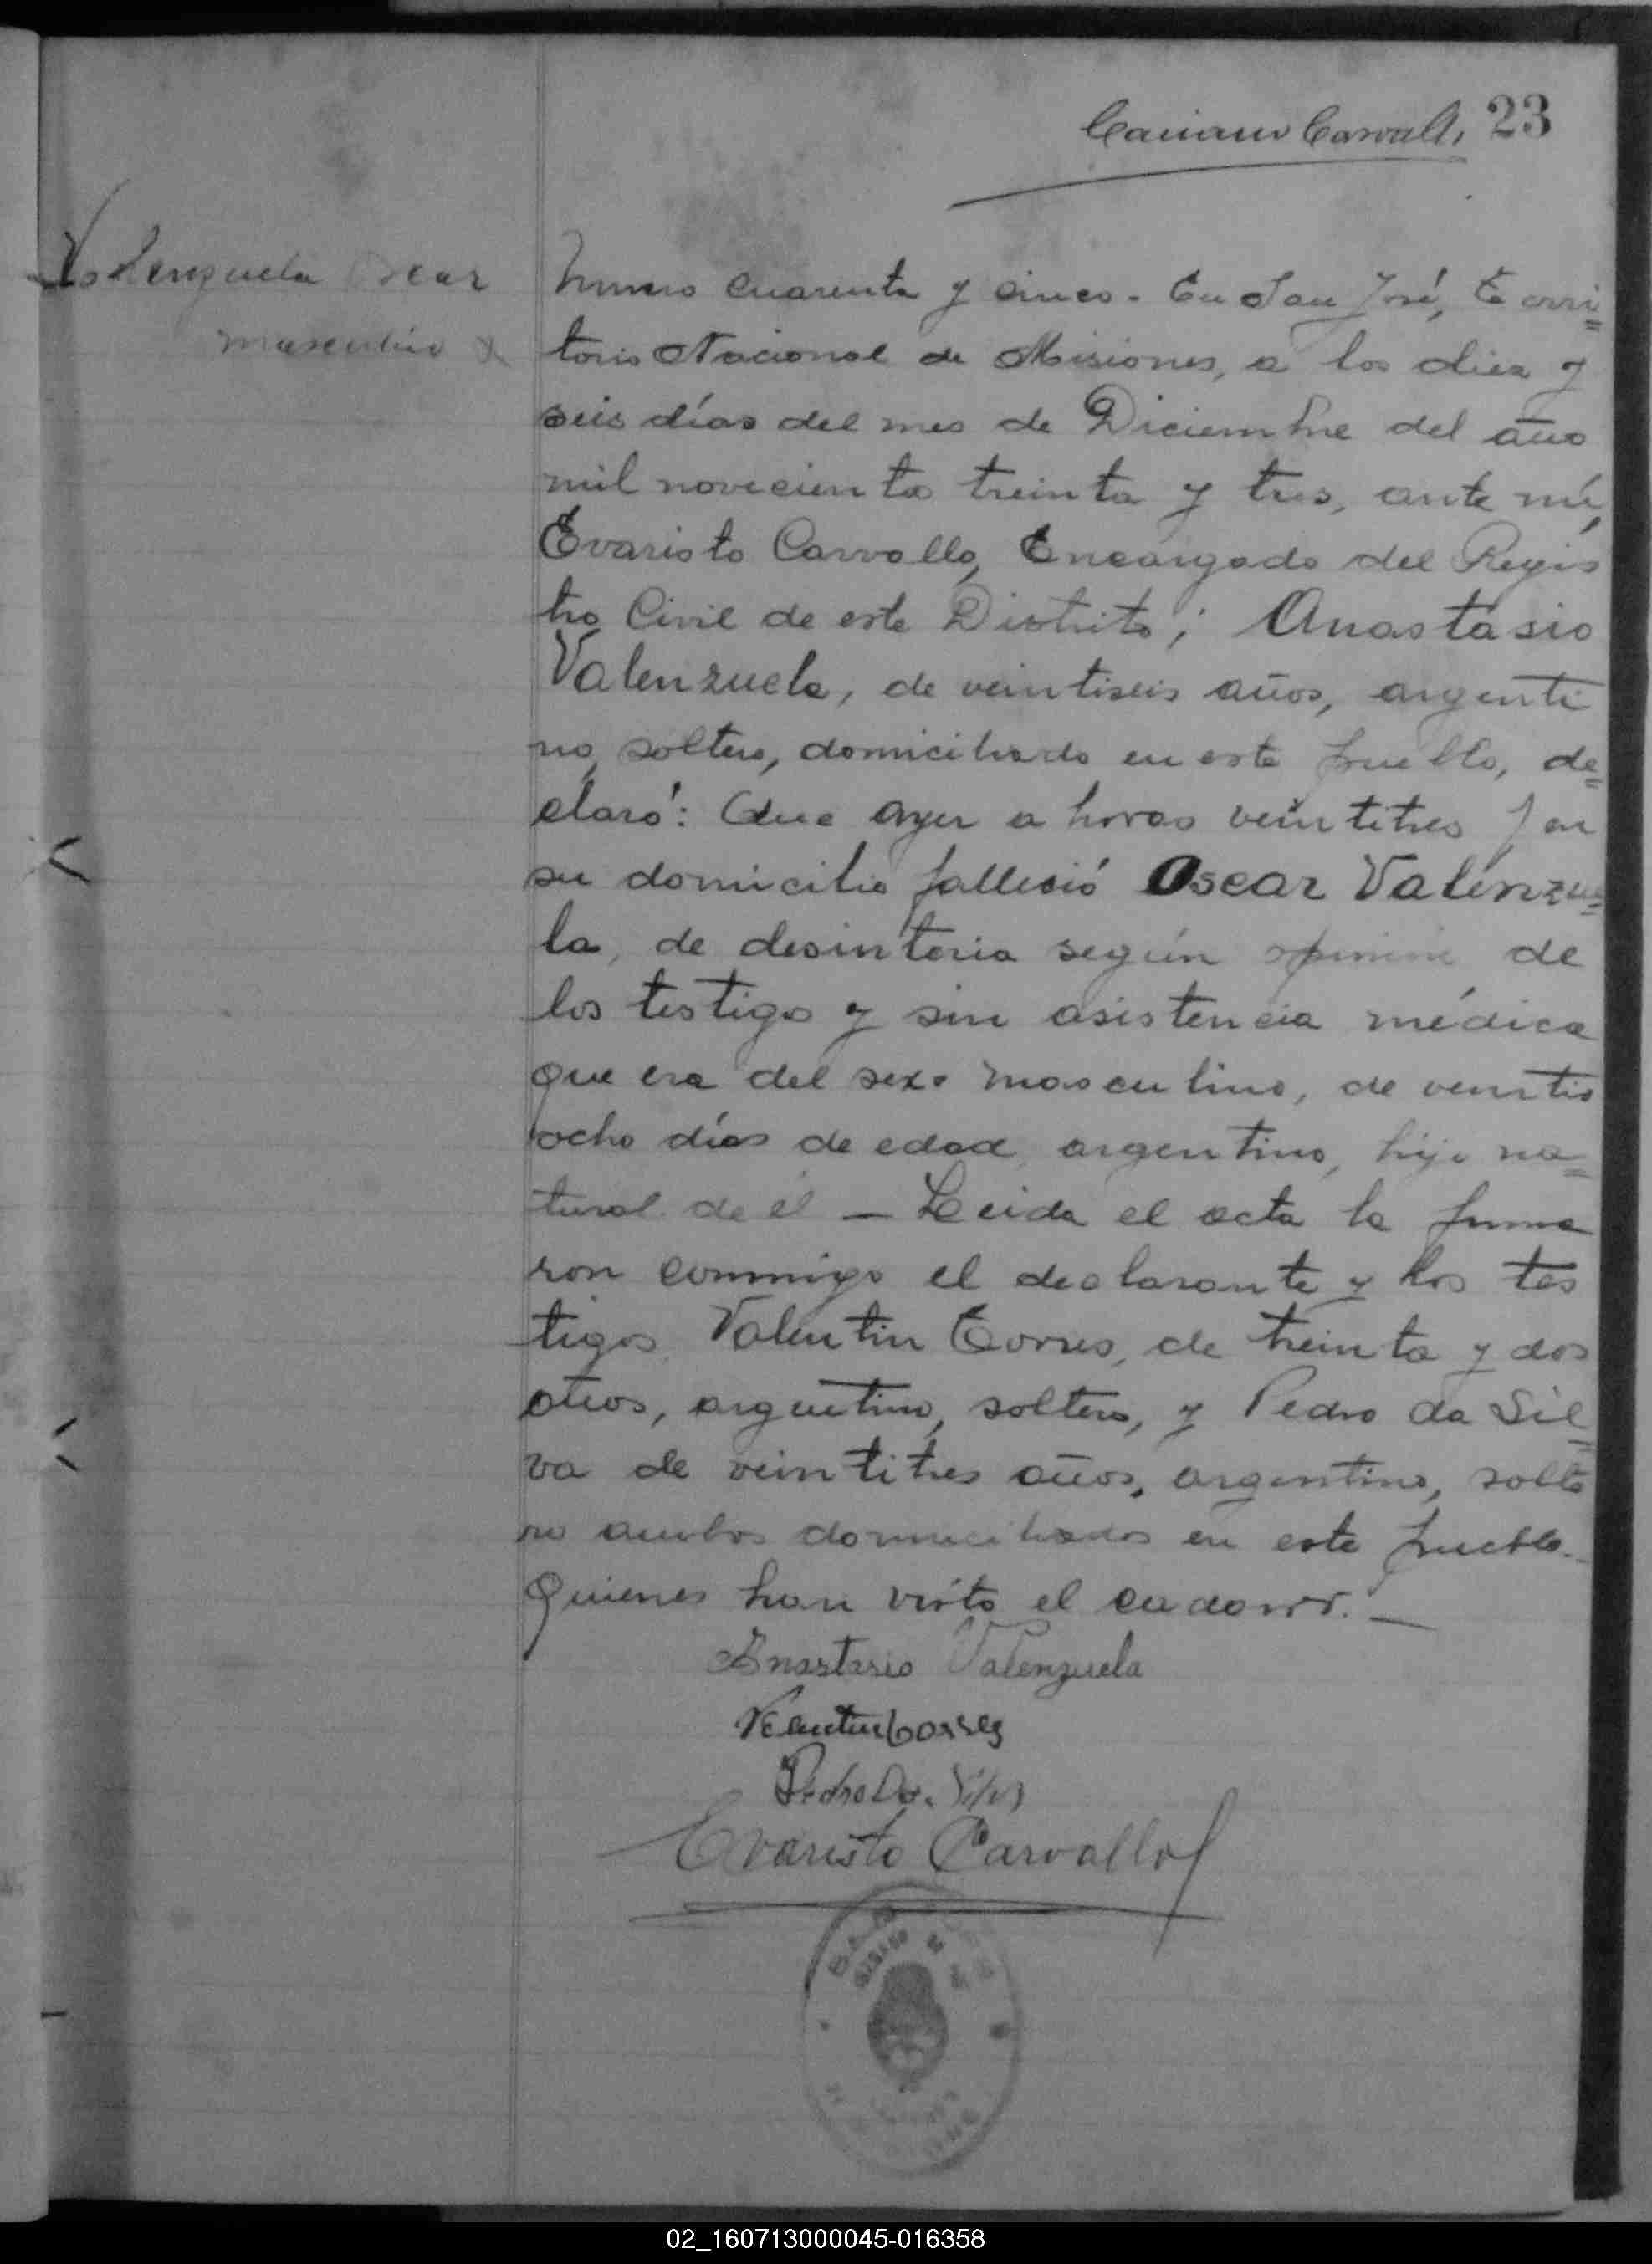 23
Valenzuela Oscar
masculino
Numero Cuarenta y cinco. En San José, Terri=
torio Nacional de Misiones, a los diez y
seis días del mes de Diciembre del año
mil novecientos treinta y tres, ante mí,
Evaristo Carvallo, Encargado del Regis
tro Civil de este Distrito; Anastasio
Valenzuela, de veintiseis años, argenti
no, soltero, domiciliado en este pueblo, de=
claró: Que ayer a horas veintitres y en
su domicilio falleció Oscar Valenzue=
la, de desinteria según opinión de
los testigos y sin asistencia médica
que era del sexo masculino, de ventis
ocho días de edad, argentino, hijo na=
tural de él — Leida el acta la firma
ron conmigo el declarante y los tes
tigos Valentin Torres, de treinta y dos
años, argentino, soltero, y Pedro da Sil=
va de veintitres años, argentino, solte
ro ambos domiciliados en este pueblo.
Quienes han visto el cadaver. —
Anastasio Valenzuela
Valentin Torres
Pedro Da. Silva
Evaristo Carvallo
02_160713000045-016358